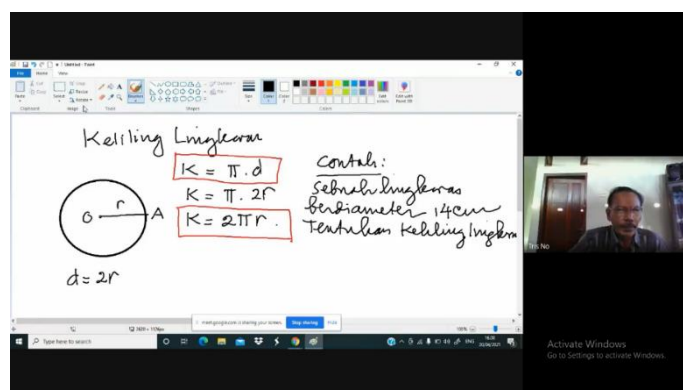 Untitled - Paint
File
Home
View
Cut
Copy
Paste
Select
Crop
Resize
Rotate
Brushes
Size
Clipboard
Image
Tools
Shapes
Colors
Keliling Lingkaran
K = π . d
K = π . 2r
K = 2πr .
O r A
d = 2r
Contoh :
Sebuah lingkaran
berdiameter 14 cm
Tentukan Keliling lingkaran
meet.google.com is sharing your screen.
Stop sharing
Hide
100%
Type here to search
ENG
Tris No
Activate Windows
Go to Settings to activate Windows.